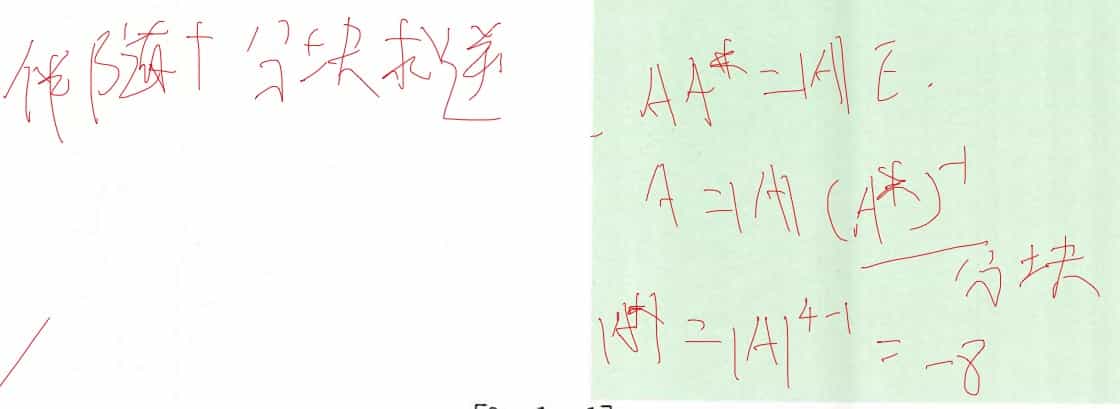 伴随+分块求逆
AA* = |A| E.
A = |A| (A*)⁻¹
分块
|A*| = |A|⁴⁻¹ = -8